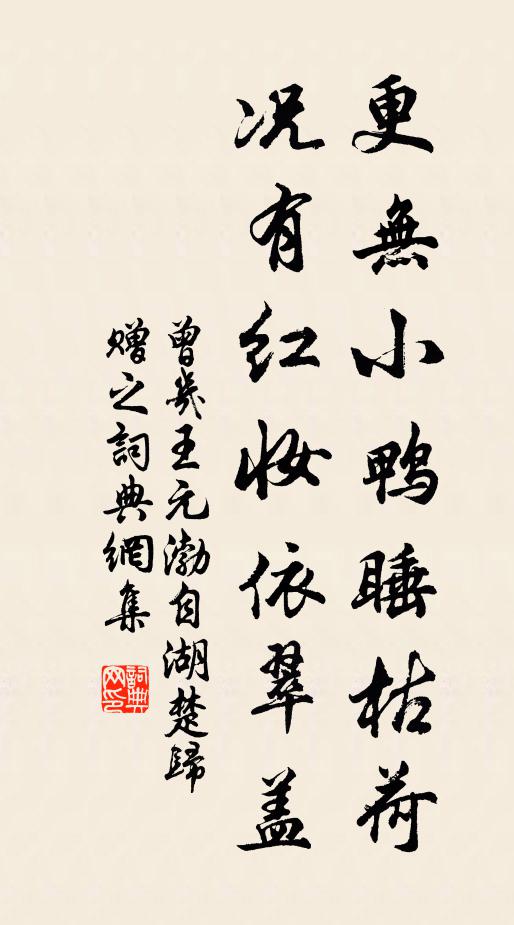 更無小鴨睡枯荷
况有红妆依翠盖
曾幾王元渤自湖楚歸
赠之詞典網集
詞典
网印